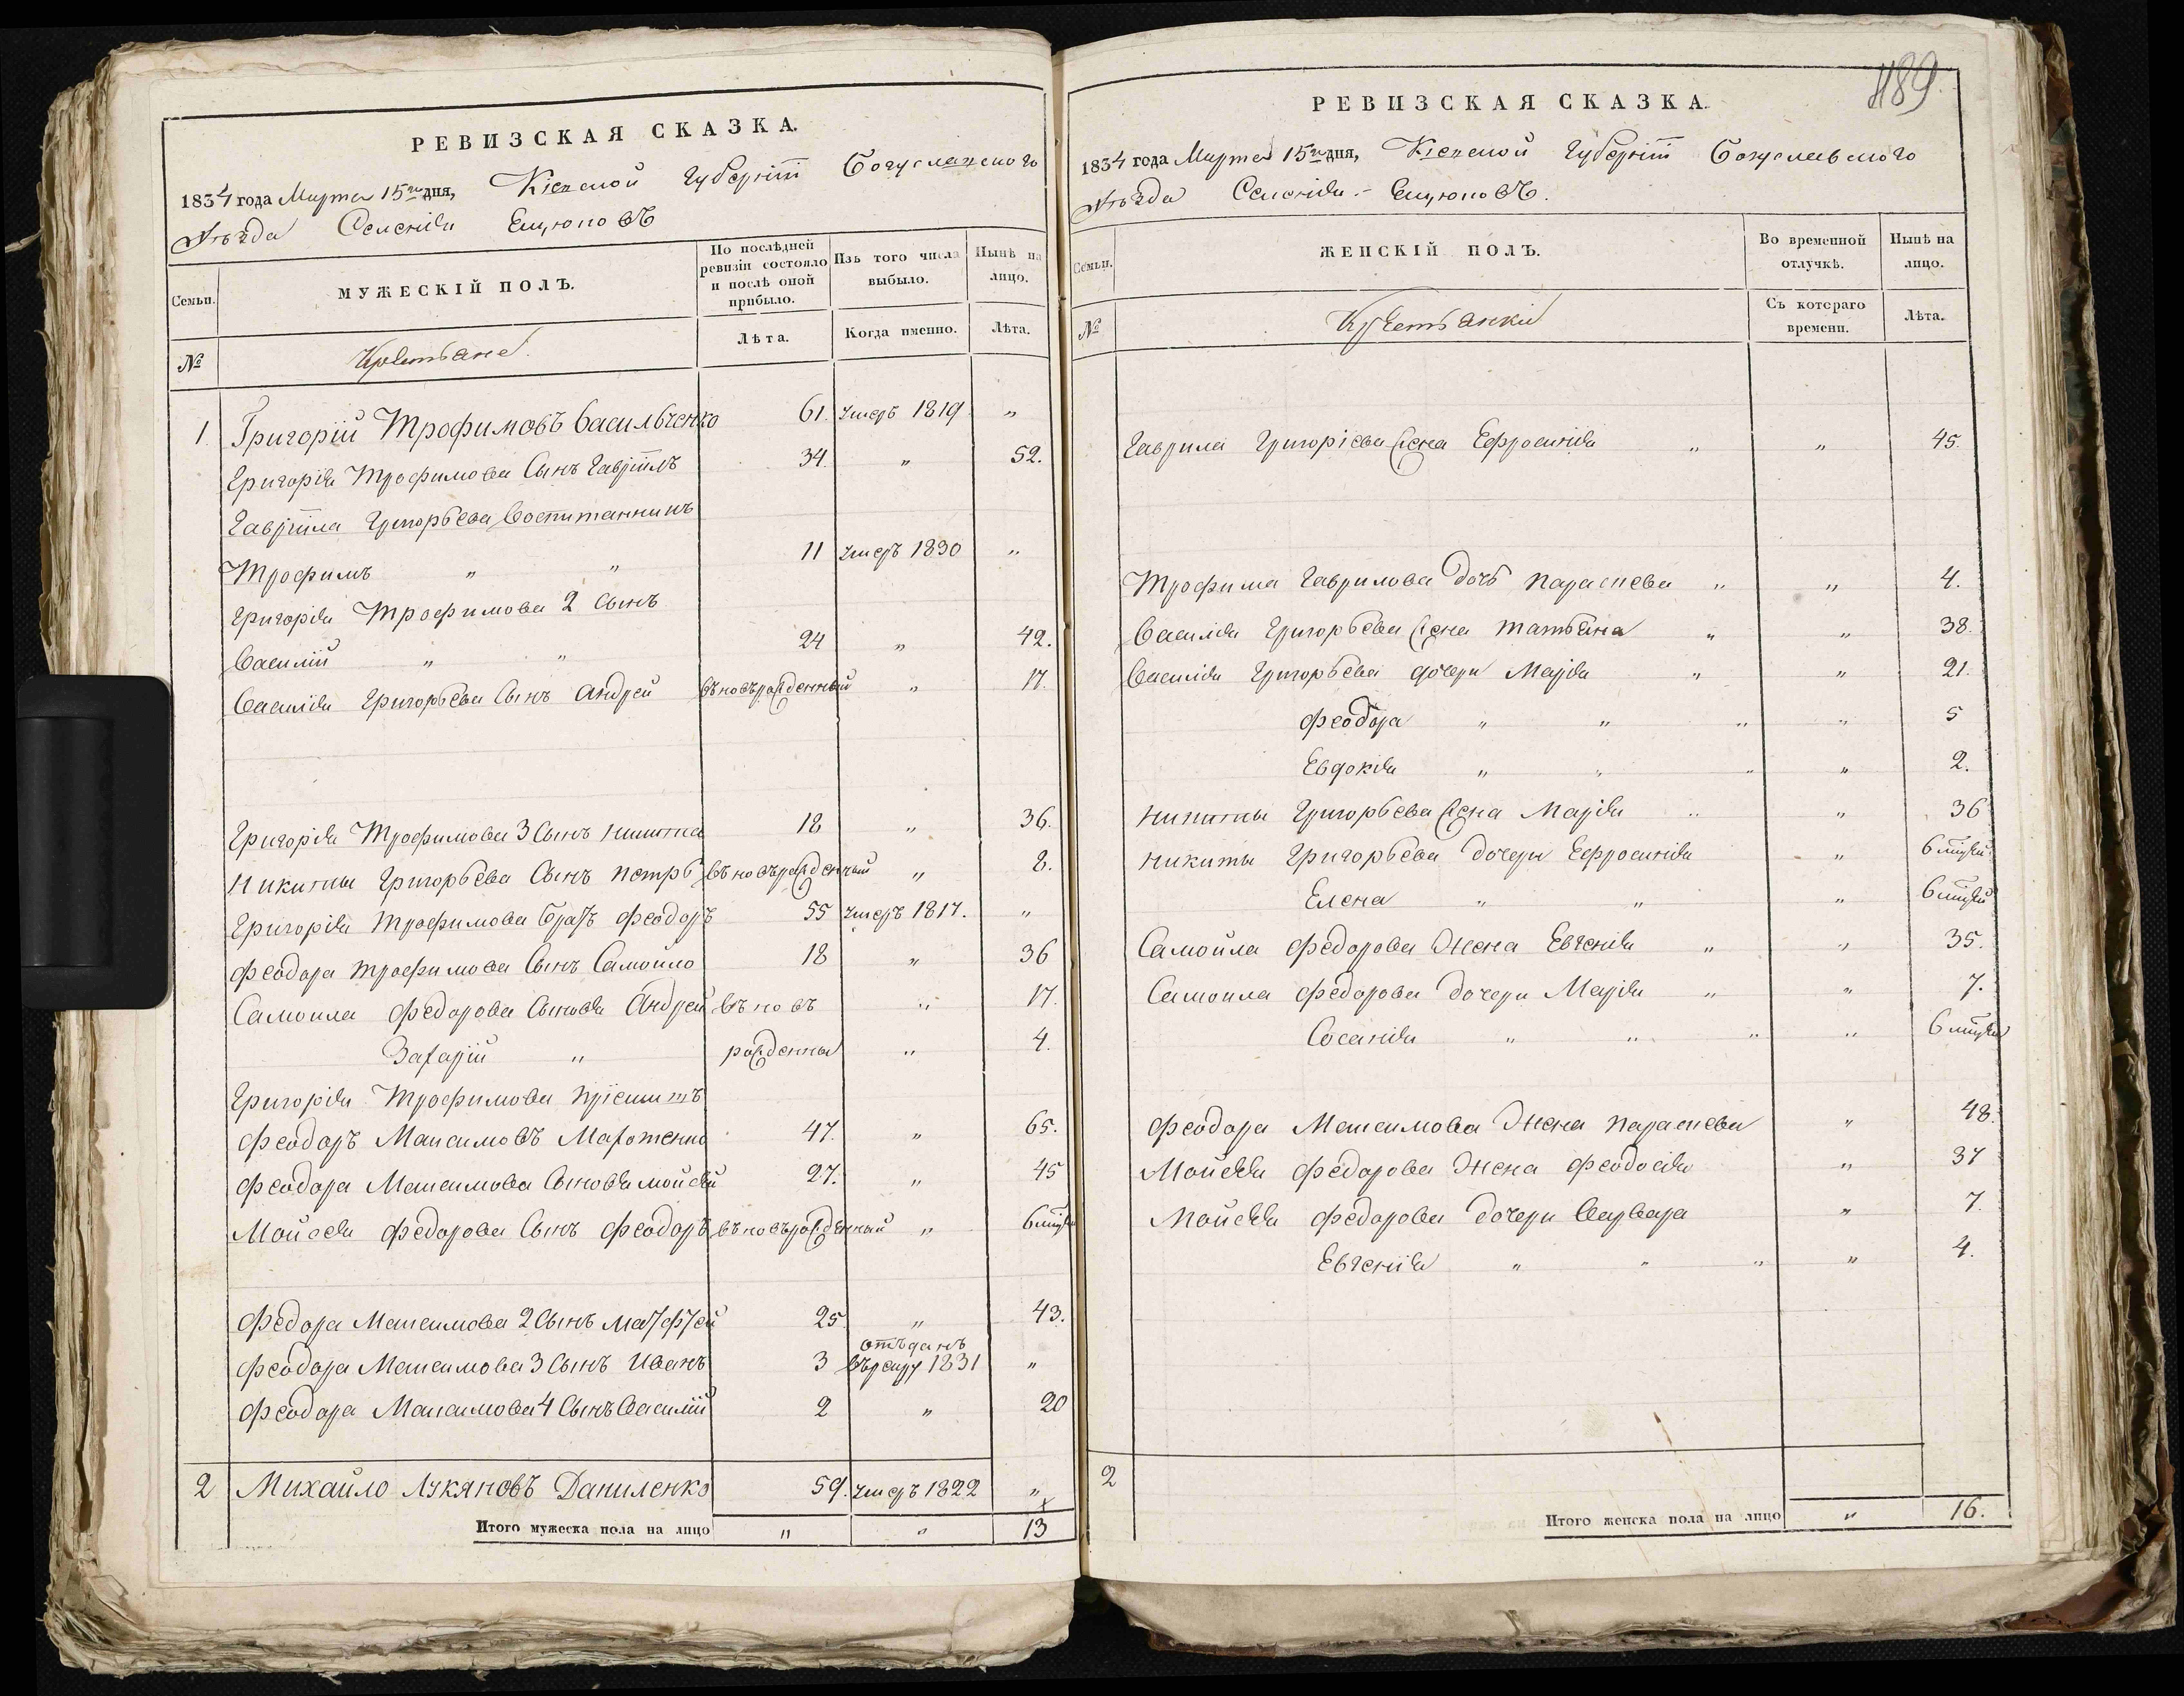 РЕВИЗСКАЯ СКАЗКА.
1834 года Марта 15го дня, Кіевской губерніи Богуславского
уѣзда Селенія Емцюповъ
Семьи. МУЖЕСКІЙ ПОЛЪ. По послѣдней ревизіи состояло и послѣ оной прибыло. Изъ того числа выбыло. Нынѣ на лицо.
№ Крестьяне. Лѣта. Когда именно. Лѣта.
1 Григорій Трофимовъ Васильченко 61. умеръ 1819 „
Григорія Трофимова Сынъ Гавріилъ 34. „ 52.
Гавріила Григорьева Воспитанникъ
Трофимъ „ „ 11 умеръ 1830 „
Григорія Трофимова 2 Сынъ
Василій „ „ 24 „ 42.
Василія Григорьева Сынъ Андрей вновьрожденный „ 17.
Григорія Трофимова 3 Сынъ Никита 18 „ 36.
Никиты Григорьева Сынъ Петръ вновьрожденный „ 8.
Григорія Трофимова братъ Феодоръ 55 умеръ 1817. „
Феодора Трофимова Сынъ Самойло 18 „ 36
Самоила Федорова Сыновя Андрей вновь „ 17.
Захарій „ рожденны „ 4.
Григорія Трофимова
Феодоръ Максимовъ 47. „ 65.
Феодора Максимова Сыновя Мойсей 27. „ 45
Мойсея Федорова Сынъ Феодоръ вновьрожденный „ 6
Федора Максимова 2 Сынъ Матфей 25 „ 43.
отъданъ
Феодора Максимова 3 Сынъ Иванъ 3 1831 „
Феодора Максимова 4 Сынъ Василій 2 „ 20
2 Михайло Лукяновъ Даниленко 59. умеръ 1822 „
Итого мужеска пола на лицо „ „ 13
1189.
РЕВИЗСКАЯ СКАЗКА.
1834 года Марта 15го дня, Кіевской губерніи Богуславского
уѣзда Селенія Емцюповъ.
Семьи. ЖЕНСКІЙ ПОЛЪ. Во временной отлучкѣ. Нынѣ на лицо.
№ Крестьянки Съ котораго времени. Лѣта.
Гаврила Григоріева жена Ефросинія „ „ 45.
Трофима Гаврилова дочь Параскева „ „ 4.
Василія Григорьева жена Татьяна „ „ 38.
Василія Григорьева дочери Марія „ „ 21.
Феодора „ „ „ „ 5
Евдокія „ „ „ „ 2.
Никиты Григорьева жена Марія „ „ 36
Никиты Григорьева дочери Ефросинія „ 6
Елена „ „ „ 6
Самойла Федорова жена Евгенія „ „ 35.
Самоила Федорова дочери Марія „ „ 7.
Сосанія „ „ „ „ 6
Феодора Максимова жена Параскева „ 48.
Мойсея Федорова жена Феодосія „ 37
Мойсея Федорова дочери Варвара „ 7.
Евгенія „ „ „ „ 4.
2
Итого женска пола на лицо „ 16.